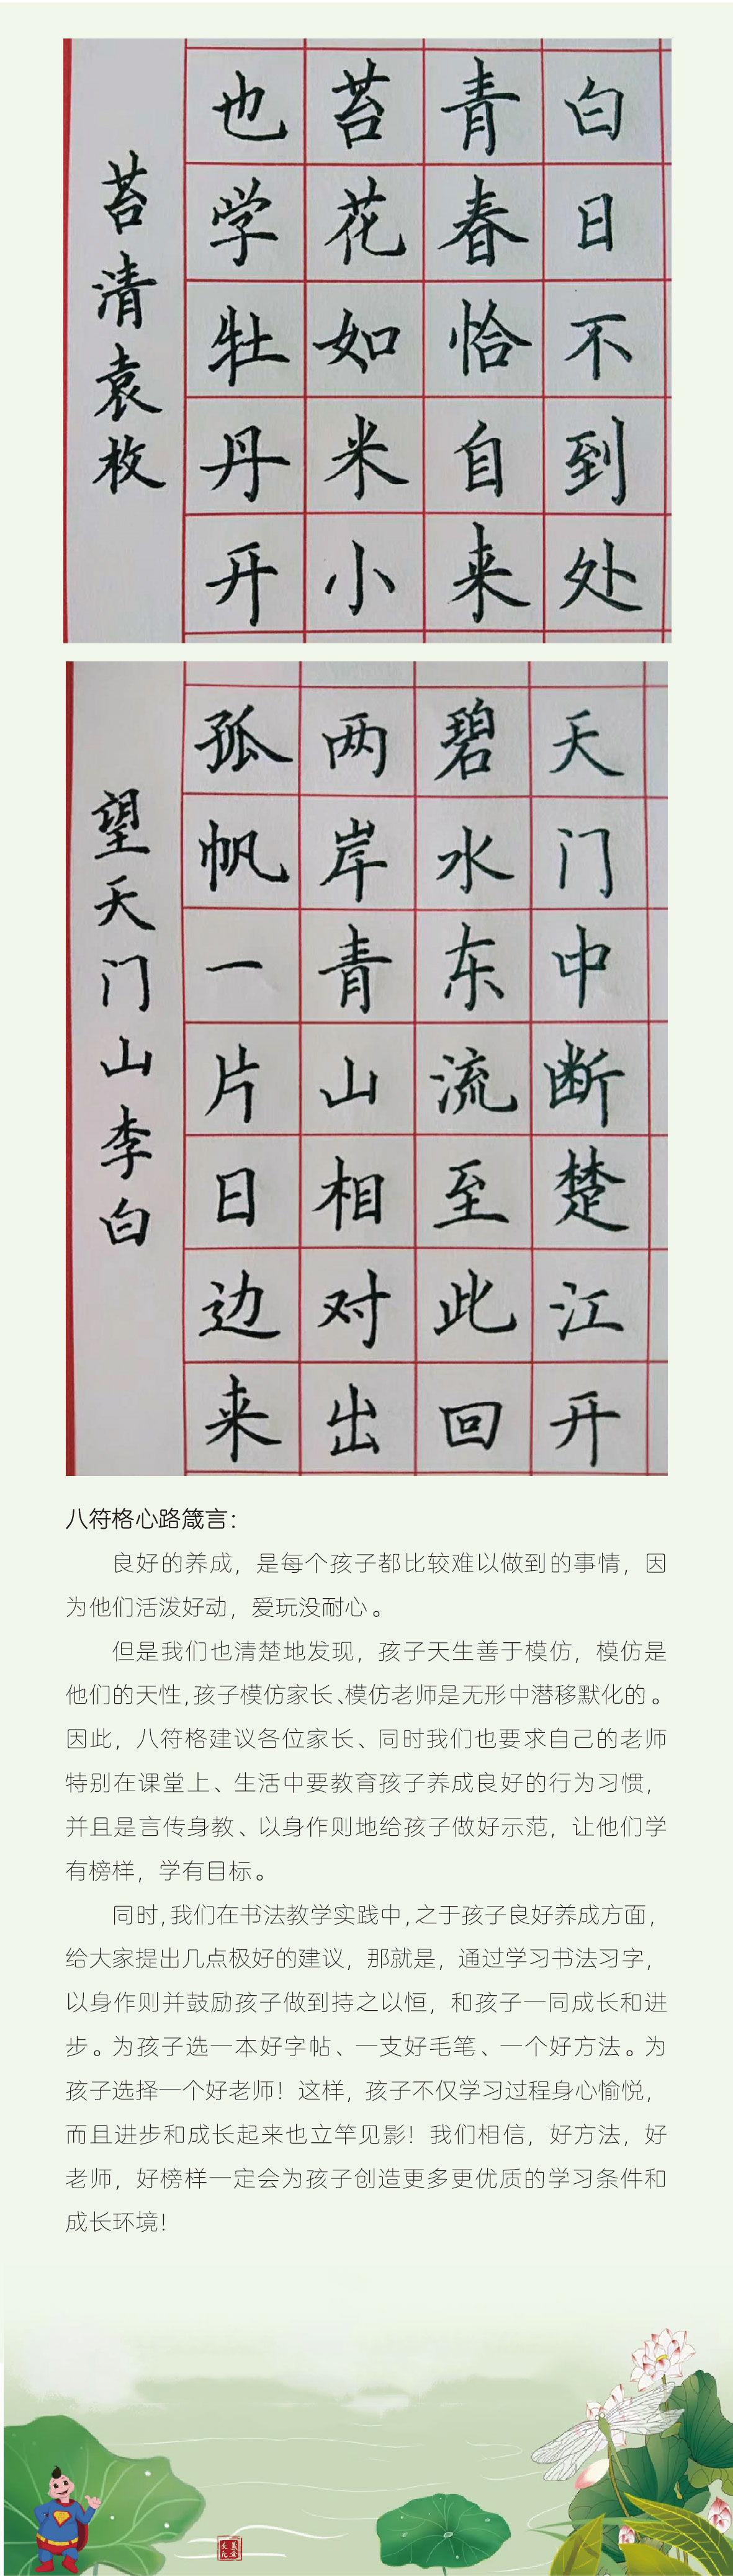 白日不到处
青春恰自来
苔花如米小
也学牡丹开
苔清袁枚
天门中断楚江开
碧水东流至此回
两岸青山相对出
孤帆一片日边来
望天门山李白
八符格心路箴言：
良好的养成，是每个孩子都比较难以做到的事情，因
为他们活泼好动，爱玩没耐心。
但是我们也清楚地发现，孩子天生善于模仿，模仿是
他们的天性，孩子模仿家长、模仿老师是无形中潜移默化的。
因此，八符格建议各位家长、同时我们也要求自己的老师
特别在课堂上、生活中要教育孩子养成良好的行为习惯，
并且是言传身教、以身作则地给孩子做好示范，让他们学
有榜样，学有目标。
同时，我们在书法教学实践中，之于孩子良好养成方面，
给大家提出几点极好的建议，那就是，通过学习书法习字，
以身作则并鼓励孩子做到持之以恒，和孩子一同成长和进
步。为孩子选一本好字帖、一支好毛笔、一个好方法。为
孩子选择一个好老师！这样，孩子不仅学习过程身心愉悦，
而且进步和成长起来也立竿见影！我们相信，好方法，好
老师，好榜样一定会为孩子创造更多更优质的学习条件和
成长环境！